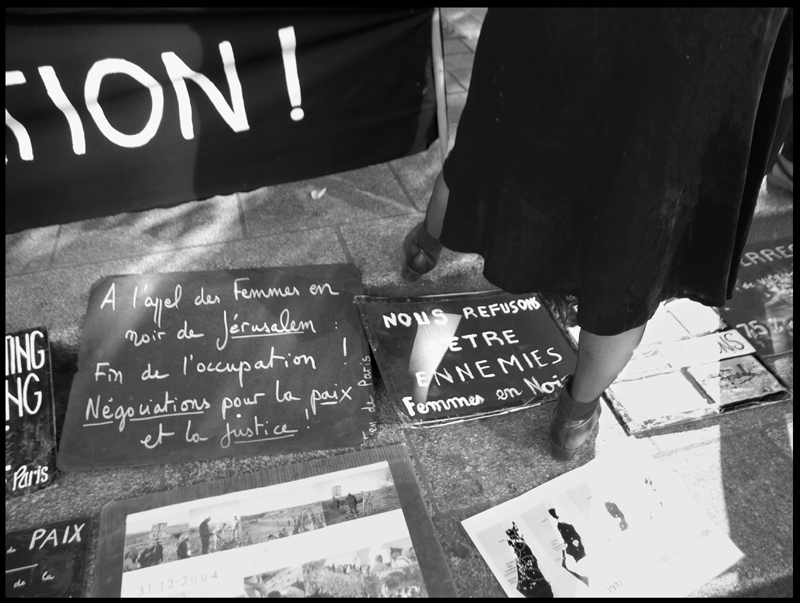 TION !
A l'appel des Femmes en
noir de Jérusalem :
Fin de l'occupation !
Négociations pour la paix
et la justice !
Fen de Paris
NOUS REFUSONS
D'ETRE
ENNEMIES
Femmes en Noir
TING
NG
Paris
PAIX
de la
31-12-2004
ERRES
ONS